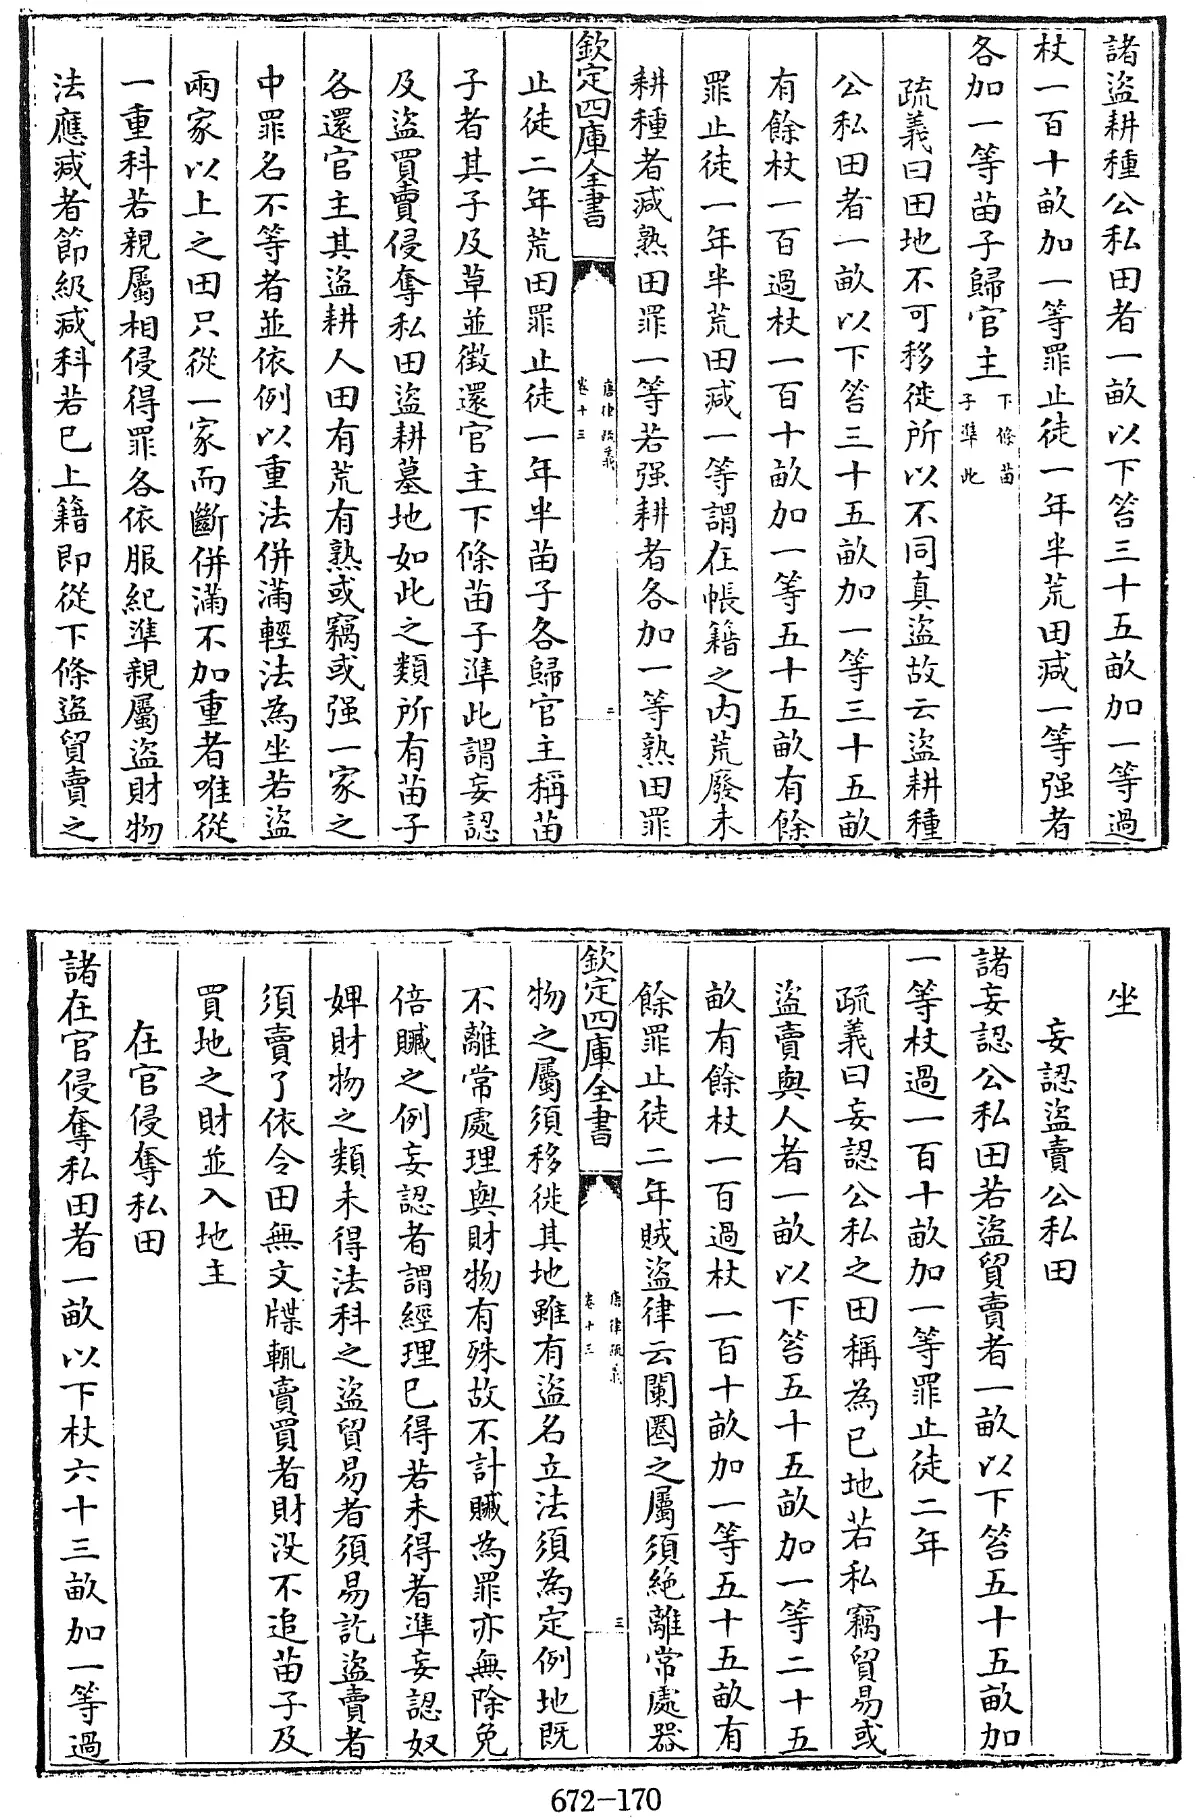 諸盜耕種公私田者一畝以下笞三十五畝加一等過
杖一百十畝加一等罪止徒一年半荒田減一等强者
各加一等苗子歸官主下條苗子準此
疏義曰田地不可移徙所以不同真盜故云盜耕種
公私田者一畝以下笞三十五畝加一等三十五畝
有餘杖一百過杖一百十畝加一等五十五畝有餘
罪止徒一年半荒田減一等謂在帳籍之内荒廢未
耕種者減熟田罪一等若强耕者各加一等熟田罪
欽定四庫全書
唐律疏義
卷十三
二
止徒二年荒田罪止徒一年半苗子各歸官主稱苗
子者其子及草並徵還官主下條苗子準此謂妄認
及盜買賣侵奪私田盜耕墓地如此之類所有苗子
各還官主其盜耕人田有荒有熟或竊或强一家之
中罪名不等者並依例以重法併滿輕法為坐若盜
兩家以上之田只從一家而斷併滿不加重者唯從
一重科若親屬相侵得罪各依服紀準親屬盜財物
法應減者節級減科若已上籍即從下條盜貿賣之
坐
妄認盜賣公私田
諸妄認公私田若盜貿賣者一畝以下笞五十五畝加
一等杖過一百十畝加一等罪止徒二年
疏義曰妄認公私之田稱為已地若私竊貿易或
盜賣與人者一畝以下笞五十五畝加一等二十五
畝有餘杖一百過杖一百十畝加一等五十五畝有
餘罪止徒二年賊盜律云闌圈之屬須絶離常處器
欽定四庫全書
唐律疏義
卷十三
三
物之屬須移徙其地雖有盜名立法須為定例地既
不離常處理與財物有殊故不計贓為罪亦無除免
倍贓之例妄認者謂經理已得若未得者準妄認奴
婢財物之類未得法科之盜貿易者須易訖盜賣者
須賣了依令田無文牒輒賣買者財没不追苗子及
買地之財並入地主
在官侵奪私田
諸在官侵奪私田者一畝以下杖六十三畝加一等過
672-170